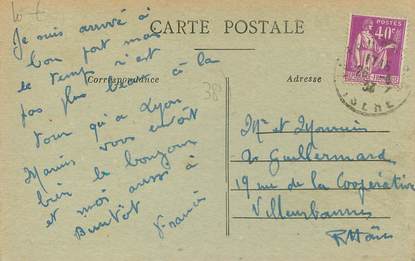 CARTE POSTALE
Correspondance
Adresse
Je suis arrivé à
bon port mais
le temps n'est
pas plus beau à la
Tour qu'a Lyon
Marius vous envoit
bien le bonjour
et moi aussi à
Bientôt
Francis
38
POSTES
40c
ISERE
Mr et
Guillermard
19 rue de la Coopérative
Villeurbanne
Rhône